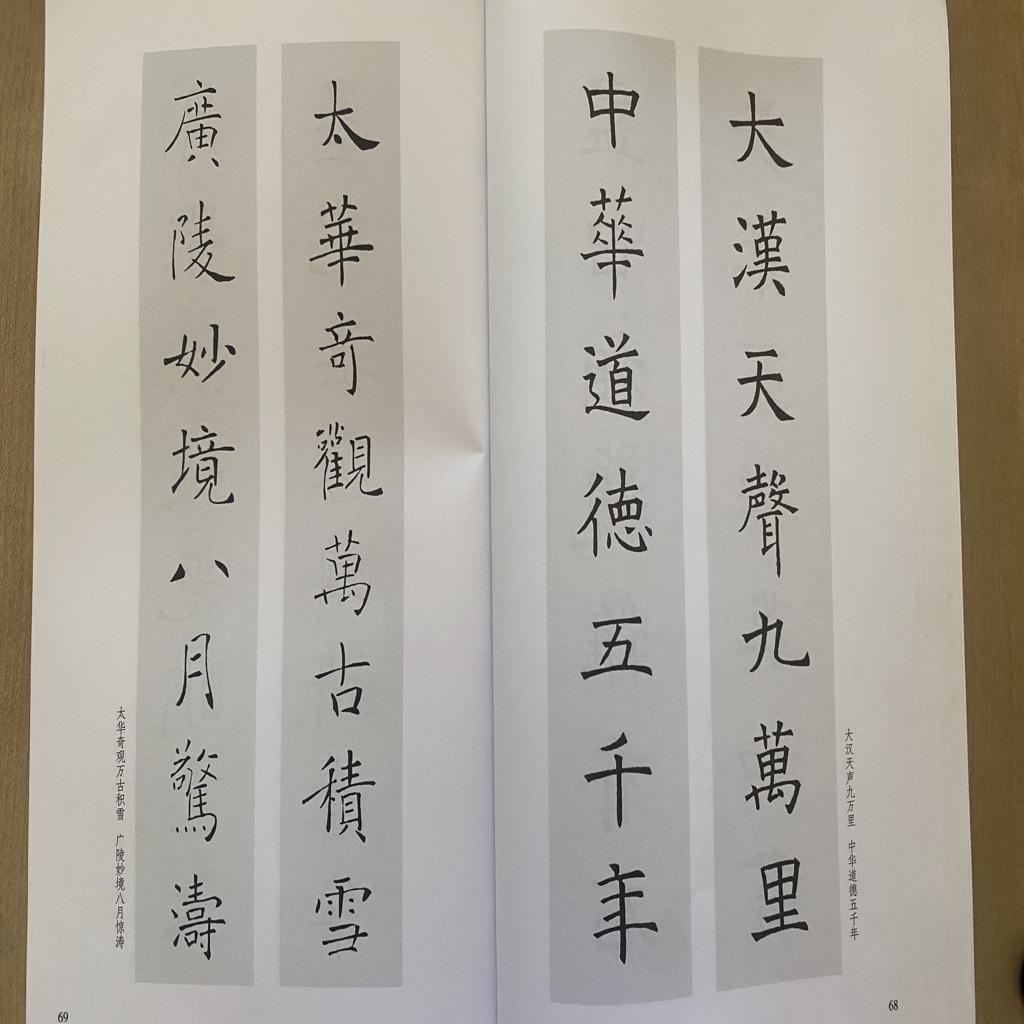 大漢天聲九萬里
中華道德五千年
大汉天声九万里 中华道德五千年
68
太華奇觀萬古積雪
廣陵妙境八月驚濤
太华奇观万古积雪 广陵妙境八月惊涛
69